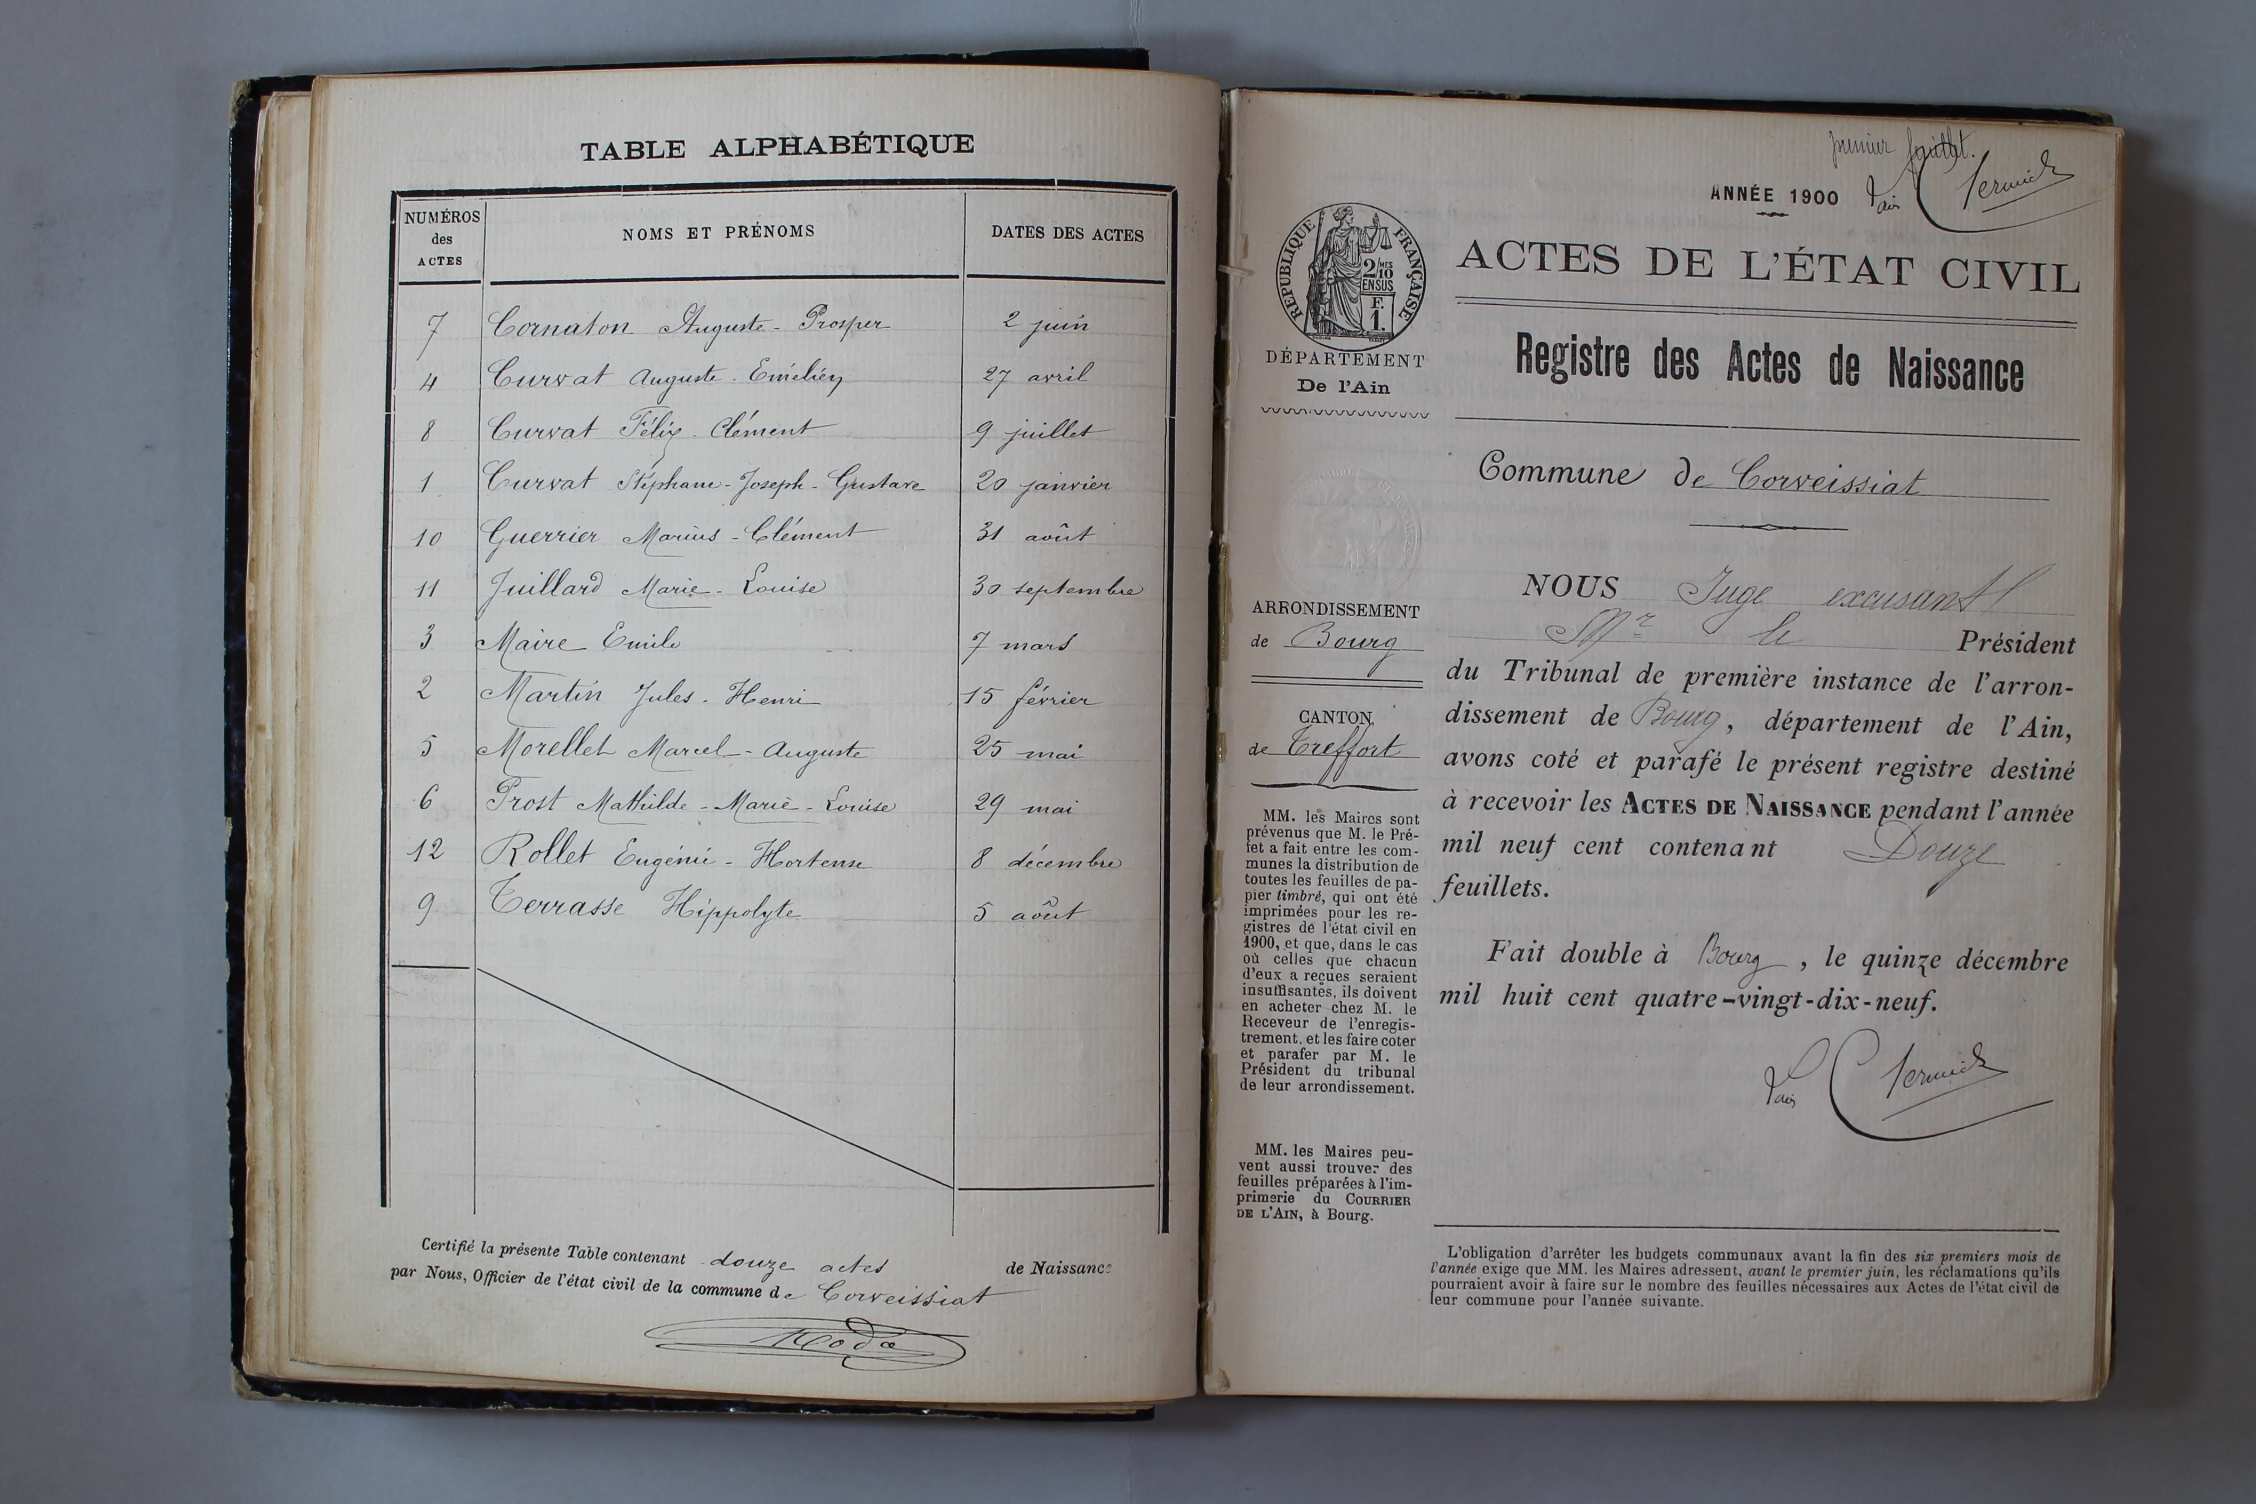 TABLE ALPHABÉTIQUE
NUMÉROS
des
ACTES
NOMS ET PRÉNOMS
DATES DES ACTES
7 Cornaton Auguste - Prosper 2 juin
4 Curvat Auguste - Emélien 27 avril
8 Curvat Félix - Clément 9 juillet
1 Curvat Stéphane - Joseph - Gustave 20 janvier
10 Guerrier Marius - Clément 31 août
11 Juillard Marie - Louise 30 septembre
3 Maire Emile 7 mars
2 Martin Jules - Henri 15 février
5 Morellet Marcel - Auguste 25 mai
6 Prost Mathilde - Marie - Louise 29 mai
12 Rollet Eugénie - Hortense 8 décembre
9 Terrasse Hippolyte 5 août
Certifié la présente Table contenant douze actes de Naissance
par Nous, Officier de l'état civil de la commune de Corveissiat
premier feuillet.
ANNÉE 1900
RÉPUBLIQUE FRANÇAISE
2/10 MES
EN SUS
F.
1.
DÉPARTEMENT
De l'Ain
ACTES DE L'ÉTAT CIVIL
Registre des Actes de Naissance
Commune de Corveissiat
ARRONDISSEMENT
de Bourg
CANTON
de Treffort
MM. les Maires sont
prévenus que M. le Pré-
fet a fait entre les com-
munes la distribution de
toutes les feuilles de pa-
pier timbré, qui ont été
imprimées pour les re-
gistres de l'état civil en
1900, et que, dans le cas
où celles que chacun
d'eux a reçues seraient
insuffisantes, ils doivent
en acheter chez M. le
Receveur de l'enregis-
trement, et les faire coter
et parafer par M. le
Président du tribunal
de leur arrondissement.
MM. les Maires peu-
vent aussi trouver des
feuilles préparées à l'im-
primerie du COURRIER
DE L'AIN, à Bourg.
NOUS Juge excusant
Mr le Président
du Tribunal de première instance de l'arron-
dissement de Bourg, département de l'Ain,
avons coté et parafé le présent registre destiné
à recevoir les ACTES DE NAISSANCE pendant l'année
mil neuf cent contenant Douze
feuillets.
Fait double à Bourg, le quinze décembre
mil huit cent quatre-vingt-dix-neuf.
L'obligation d'arrêter les budgets communaux avant la fin des six premiers mois de
l'année exige que MM. les Maires adressent, avant le premier juin, les réclamations qu'ils
pourraient avoir à faire sur le nombre des feuilles nécessaires aux Actes de l'état civil de
leur commune pour l'année suivante.